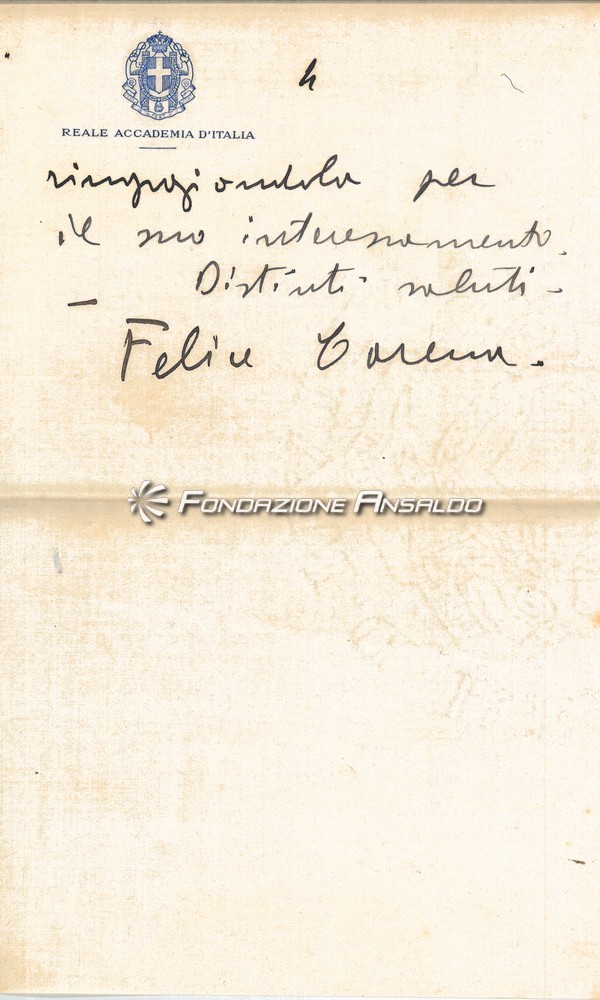 4
REALE ACCADEMIA D'ITALIA
ringraziandola per
il suo interessamento.
Distinti saluti -
Felice Carena.
FONDAZIONE ANSALDO